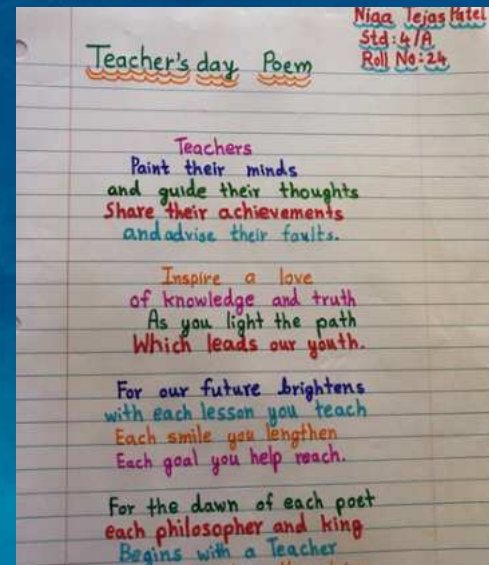 Niaa Tejas Patel
Std: 4/A
Roll No: 24
Teacher's day Poem
Teachers
Paint their minds
and guide their thoughts
Share their achievements
and advise their faults.
Inspire a love
of knowledge and truth
As you light the path
Which leads our youth.
For our future brightens
with each lesson you teach
Each smile you lengthen
Each goal you help reach.
For the dawn of each poet
each philosopher and king
Begins with a Teacher